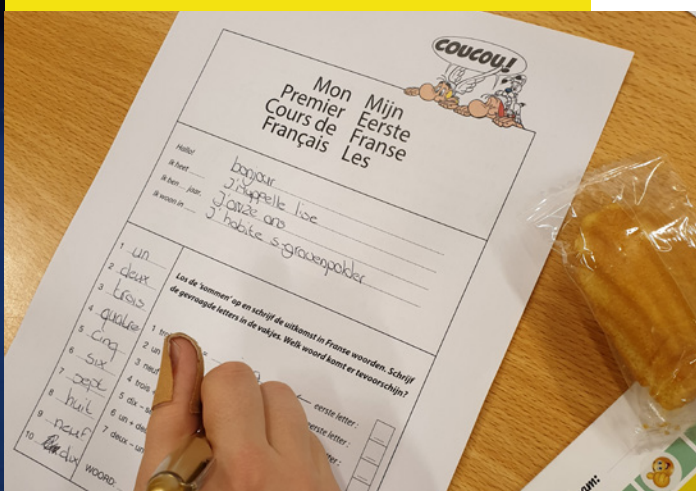 COUCOU!
Mon
Premier
Cours de
Français
Mijn
Eerste
Franse
Les
Hallo!
bonjour
Ik heet ....
J'mappelle lise
Ik ben ... jaar.
J'onze ans
Ik woon in ....
J'habite s-gravenpolder
1 un
2 deux
3 trois
4 quatre
5 cinq
6 six
7 sept
8 huit
9 neuf
10 dix
Los de 'sommen' op en schrijf de uitkomst in Franse woorden. Schrijf
de gevraagde letters in de vakjes. Welk woord komt er tevoorschijn?
1
2 un
3 neuf
4 trois
5 dix –
6 un +
7 deux –
=
← eerste letter:
eerste letter:
letter:
WOORD: